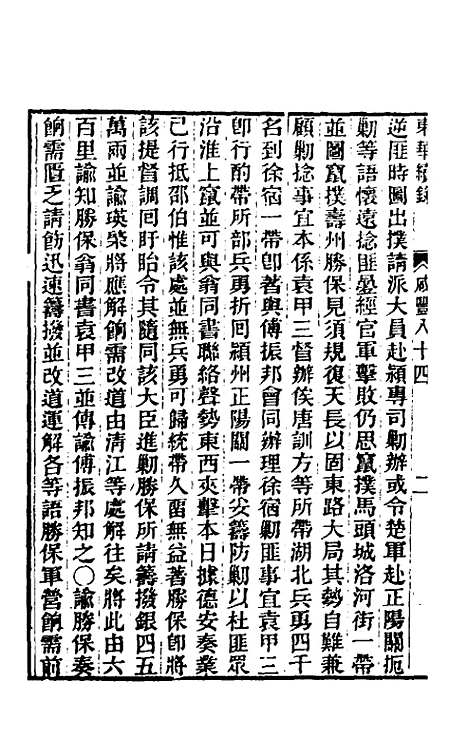 東華續錄　咸豐八十四　二
逆匪時圖出撲請派大員赴潁專司勦辦或令楚軍赴正陽關扼
勦等語懷遠捻匪屢經官軍擊敗仍思竄撲馬頭城洛河街一帶
並圖竄撲壽州勝保見須規復天長以固東路大局其勢自難兼
顧勦捻事宜本係袁甲三督辦俟唐訓方等所帶湖北兵勇四千
名到徐宿一帶卽著與傅振邦會同辦理徐宿勦匪事宜袁甲三
卽行酌帶所部兵勇折回潁州正陽關一帶妥籌防勦以杜匪眾
沿淮上竄並可與翁同書聯絡聲勢東西夾擊本日據德安奏業
已行抵邵伯惟該處並無兵勇可歸統帶久留無益著勝保卽將
該提督調回盱眙令其隨同該大臣進勦勝保所請籌撥銀四五
萬兩並諭瑛棨將應解餉需改道由淸江等處解往矣將此由六
百里諭知勝保翁同書袁甲三並傳諭傅振邦知之○諭勝保奏
餉需匱乏請飭迅速籌撥並改道運解各等語勝保軍營餉需前